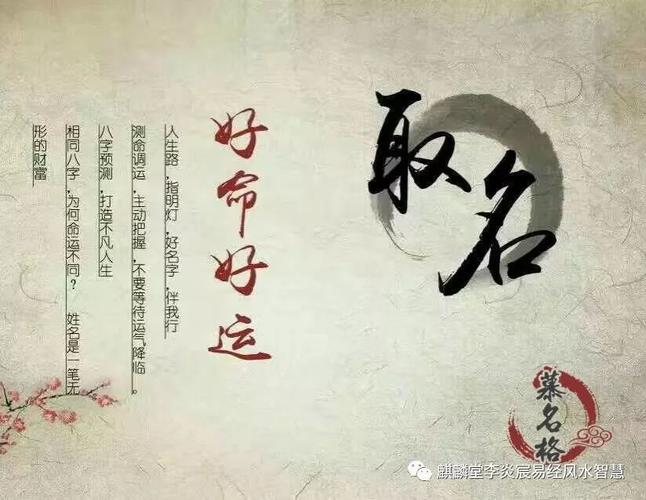 取名
好命好运
人生路,指明灯,好名字,伴我行
测命调运,主动把握,不要等待运气降临。
八字预测,打造不凡人生
相同八字,为何命运不同? 姓名是一笔无
形的财富
慕名格
麒麟堂李炎宸易经风水智慧